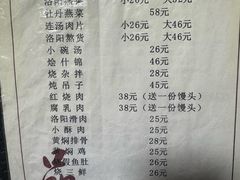 洛阳燕菜 小26元 大52元
牡丹燕菜 58元
连汤肉片 小26元 大46元
洛阳熬货 小26元 大46元
小碗汤 26元
烩什锦 46元
烧杂拌 28元
炖吊子 45元
红烧肉 38元（送一份馒头）
腐乳肉 38元（送一份馒头）
洛阳滑肉 25元
小酥肉 25元
黄焖排骨 28元
焖鸡 25元
假鱼肚 26元
烧三鲜 26元